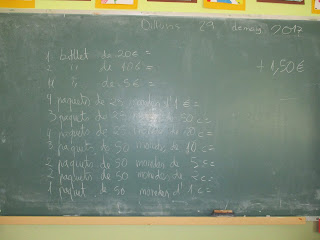 Dilluns 29 de maig 2017
1 bitllet de 20€ =
2 " de 10€ =
4 " de 5€ =
+ 1,50€
9 paquets de 25 monedes d'1€ =
3 paquets de 25 monedes de 50 c =
4 paquets de 25 monedes de 20 c =
3 paquets de 50 monedes de 10 c =
2 paquets de 50 monedes de 5 c =
2 paquets de 50 monedes de 2 c =
1 paquet de 50 monedes d'1 c =